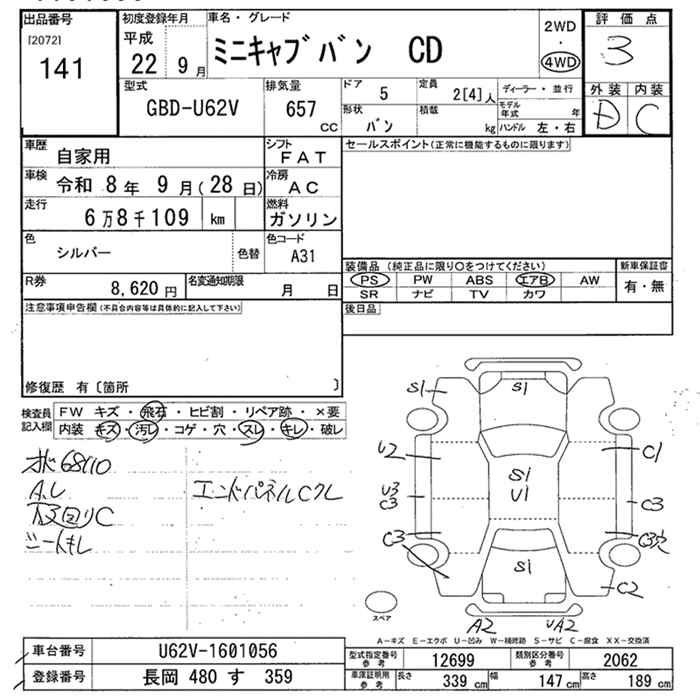 出品番号
[2072]
141
初度登録年月
平成
22 9月
車名・グレード
ミニキャブバン CD
2WD
・
4WD
評価点
3
外装 内装
D C
型式
GBD-U62V
排気量
657
CC
ドア
5
定員
2[4]人
形状
バン
積載
kg
ディーラー・並行
モデル
年式 年
ハンドル 左・右
車歴
自家用
シフト
FAT
車検
令和 8年 9月(28日)
冷房
AC
走行
6万8千109 km
燃料
ガソリン
色
シルバー
色替
色コード
A31
R券
8,620円
名変通知期限
月 日
セールスポイント(正常に機能するものに限ります)
装備品(純正品に限り○をつけてください)
PS PW ABS エアB AW
SR ナビ TV カワ
新車保証書
有・無
後日品
注意事項申告欄(不具合内容等は具体的に記入して下さい)
修復歴 有〔箇所 〕
検査員
記入欄
FW キズ・飛石・ヒビ割・リペア跡・×要
内装 キズ・汚レ・コゲ・穴・スレ・キレ・破レ
68110
エンドパネルCクレ
S1
S1
U2
C1
S1
U1
U3
C3
C3
C3
S1
C2
A2
UA2
スペア
A-キズ E-エクボ U-凹み W-補修跡 S-サビ C-腐食 XX-交換済
車台番号
U62V-1601056
登録番号
長岡 480 す 359
型式指定番号
参考
12699
類別区分番号
参考
2062
車庫証明用
参考
長さ
339 cm
幅
147 cm
高さ
189 cm